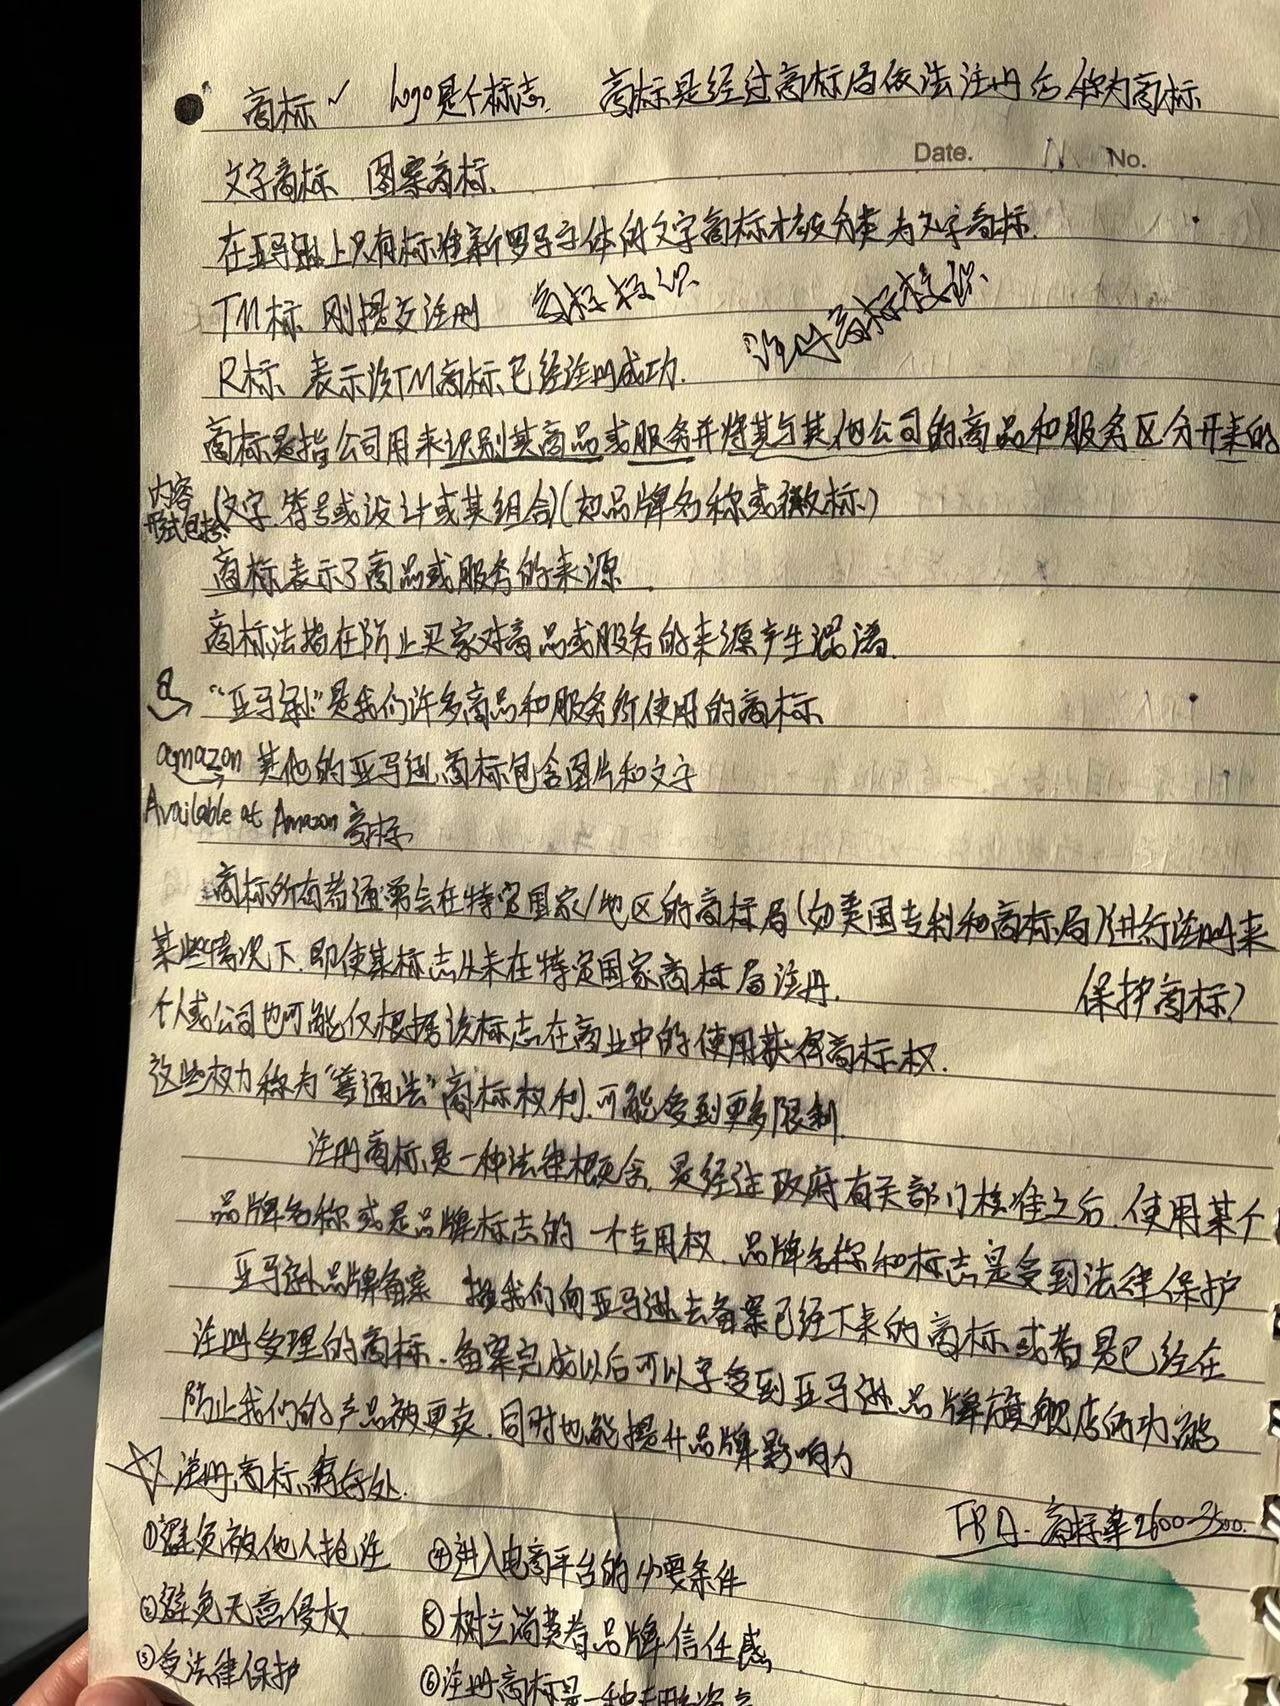 商标✓ logo是个标志. 商标是经过商标局依法注册后称为商标
Date. No.
文字商标 图案商标.
在亚马逊上只有标准新罗马字体的文字商标才被分类为文字商标.
TM标 刚提交注册 商标标识
R标 表示该TM商标已经注册成功. 注册商标标识.
商标是指公司用来识别其商品或服务并将其与其他公司的商品和服务区分开来的
内容形式包括 (文字.符号或设计或其组合)(如品牌名称或徽标)
商标表示了商品或服务的来源.
商标法指在防止买家对商品或服务的来源产生混淆.
"亚马逊"是我们许多商品和服务所使用的商标
amazon 其他的亚马逊商标包含图片和文字
Available at Amazon 商标
商标所有者通常会在特定国家/地区的商标局(如美国专利和商标局)进行注册来
保护商标)
某些情况下.即使某标志从未在特定国家商标局注册.
个人或公司也可能仅根据该标志在商业中的使用获得商标权.
这些权力称为"普通法"商标权利.可能受到更多限制.
注册商标是一种法律概念.是经过政府有关部门核准之后.使用某个
品牌名称或是品牌标志的一个专用权.品牌名称和标志是受到法律保护
亚马逊品牌备案 指我们向亚马逊去备案已经下来的商标或者是已经在
注册受理的商标.备案完成以后可以享受到亚马逊品牌旗舰店的功能
防止我们的产品被更卖.同时也能提升品牌影响力
☆注册商标 好处.
FBA- 商标 2600-3500.
①避免被他人抢注 ④进入电商平台的必要条件
②避免无意侵权 ⑤树立消费者品牌信任感
③受法律保护 ⑥注册商标是一种